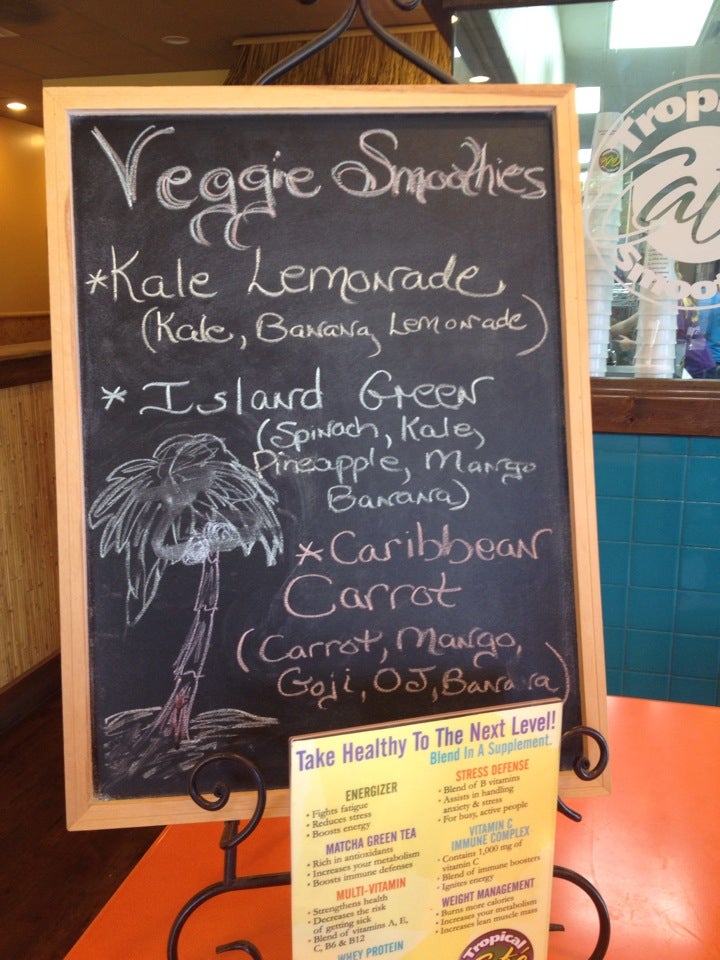 Veggie Smoothies
*Kale Lemonade
(Kale, Banana, Lemonade)
* Island Green
(Spinach, Kale,
Pineapple, Mango
Banana)
*Caribbean
Carrot
(Carrot, Mango,
Goji, OJ, Banana)
Take Healthy To The Next Level!
Blend In A Supplement.
ENERGIZER
• Fights fatigue
• Reduces stress
• Boosts energy
MATCHA GREEN TEA
• Rich in antioxidants
• Increases your metabolism
• Boosts immune defenses
MULTI-VITAMIN
• Strengthens health
• Decreases the risk
of getting sick
• Blend of vitamins A, E,
C, B6 & B12
WHEY PROTEIN
STRESS DEFENSE
• Blend of B vitamins
• Assists in handling
anxiety & stress
• For busy, active people
VITAMIN C
IMMUNE COMPLEX
• Contains 1,000 mg of
vitamin C
• Blend of immune boosters
• Ignites energy
WEIGHT MANAGEMENT
• Burns more calories
• Increases your metabolism
• Increases lean muscle mass
Tropical